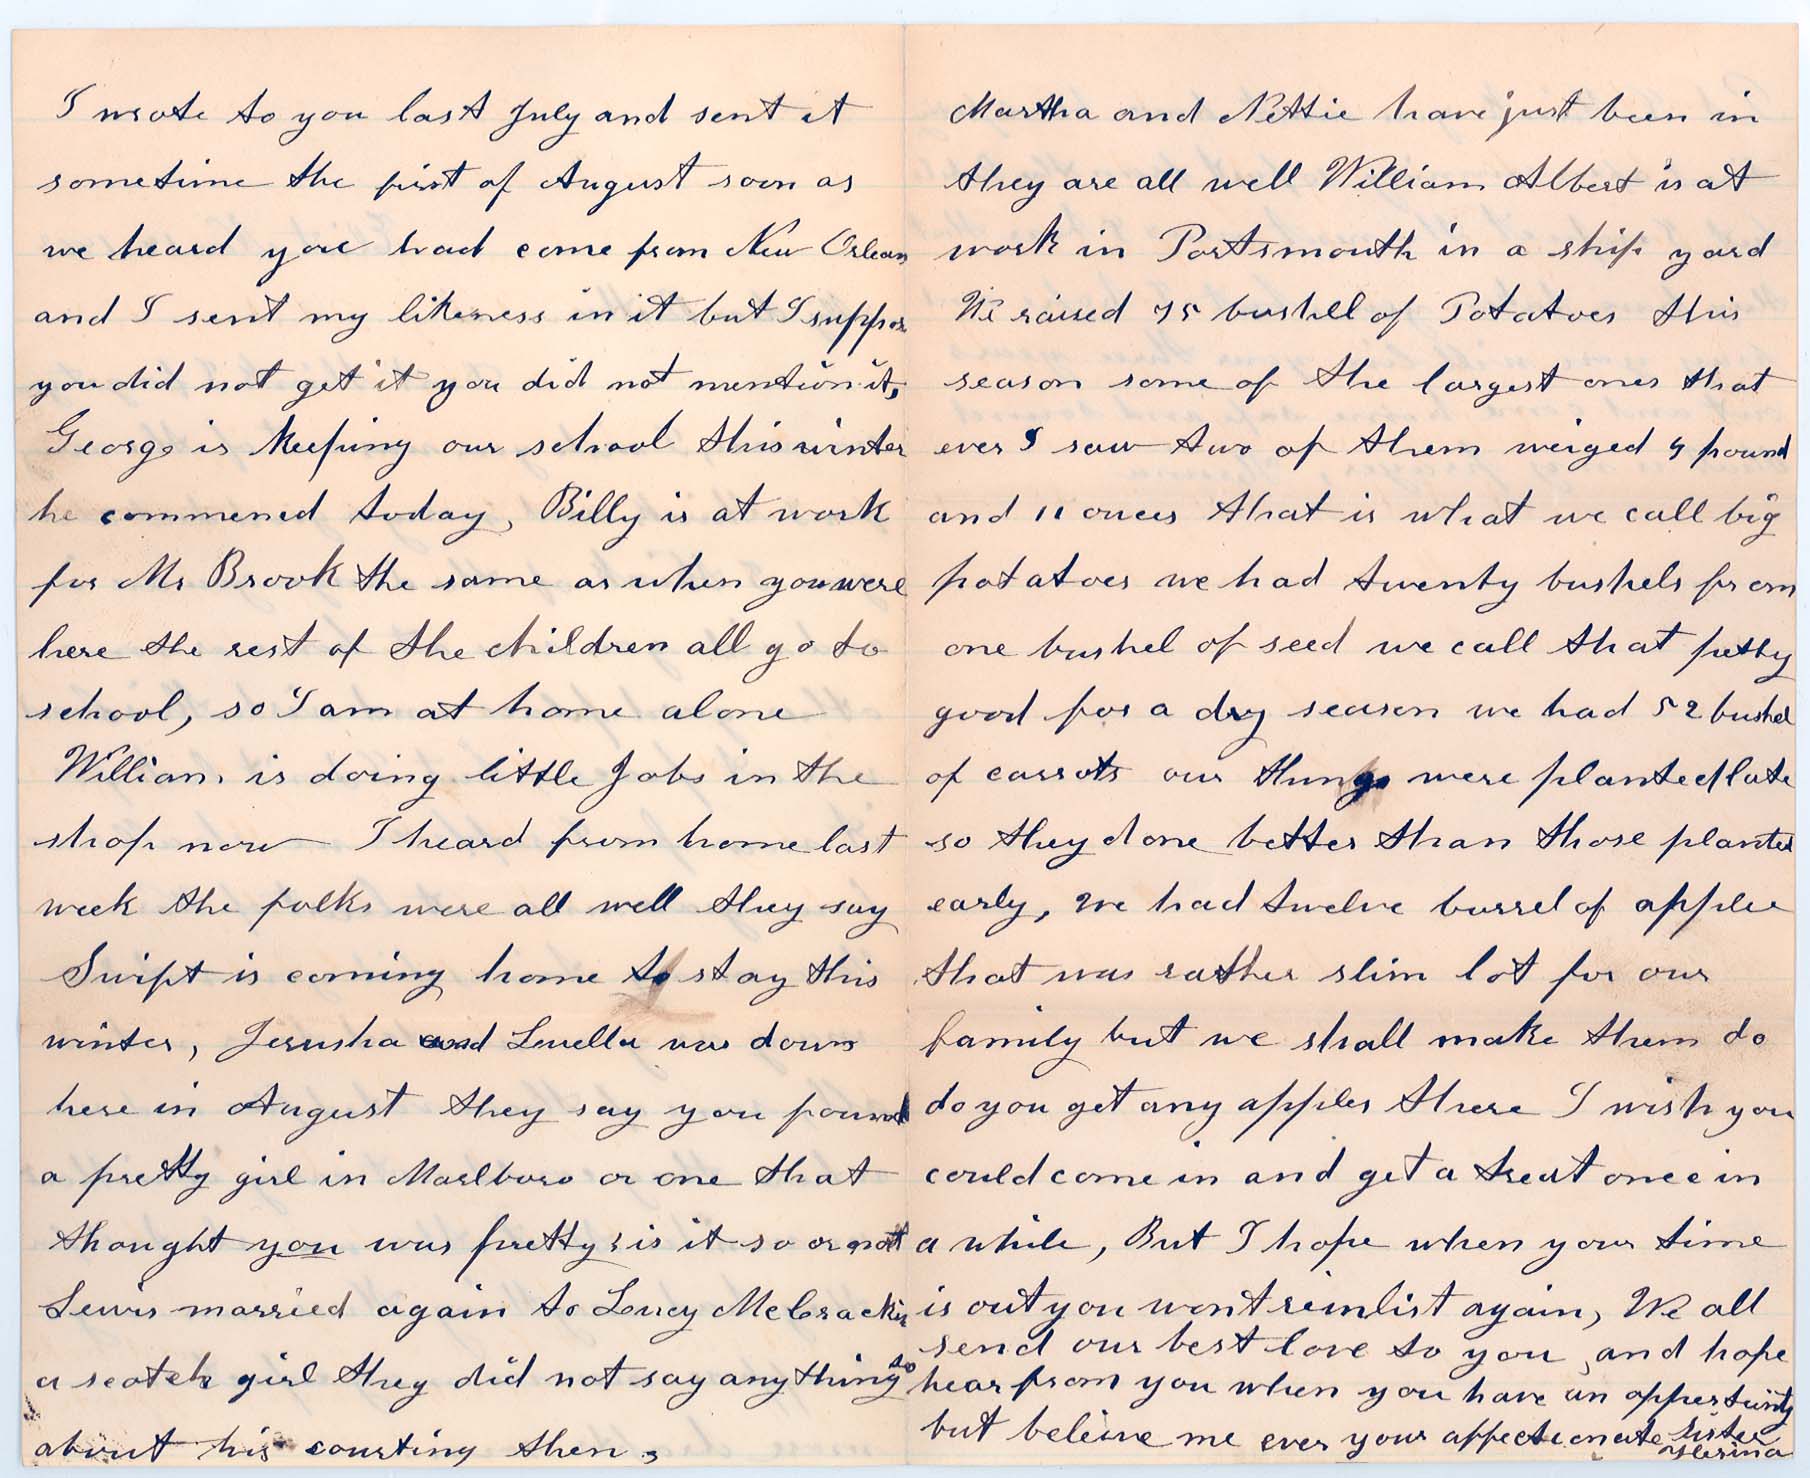 I wrote to you last July and sent it
sometime the first of August soon as
we heard you had come from New Orleans
and I sent my likeness in it but I suppose
you did not get it you did not mention it,
George is Keeping our school this winter
he commened today, Billy is at work
for Mr Brook the same as when you were
here the rest of the children all go to
school, so I am at home alone
William is doing little Jobs in the
shop now I heard from home last
week the folks were all well they say
Swift is coming home to stay this
winter, Jerusha and Luella was down
here in August they say you found
a pretty girl in Marlboro or one that
thought you was pretty; is it so or not
Lewis married again to Lucy McCrackin
a scotch girl they did not say anything to
about his courting then,
Martha and Nettie have just been in
they are all well William Albert is at
work in Portsmouth in a ship yard
We raised 75 bushell of Potatoes this
season some of the largest ones that
ever I saw two of them weiged 4 pound
and 11 onces that is what we call big
potatoes we had twenty bushels from
one bushel of seed we call that pretty
good for a dry season we had 52 bushel
of carrots our things were planted late
so they done better than those planted
early, we had twelve barrel of apples
that was rather slim lot for our
family but we shall make them do
do you get any apples there I wish you
could come in and get a treat once in
a while, But I hope when your time
is out you wont reinlist again, We all
send our best love to you and hope
hear from you when you have an oppertunity
but beleive me ever your affectionate sister